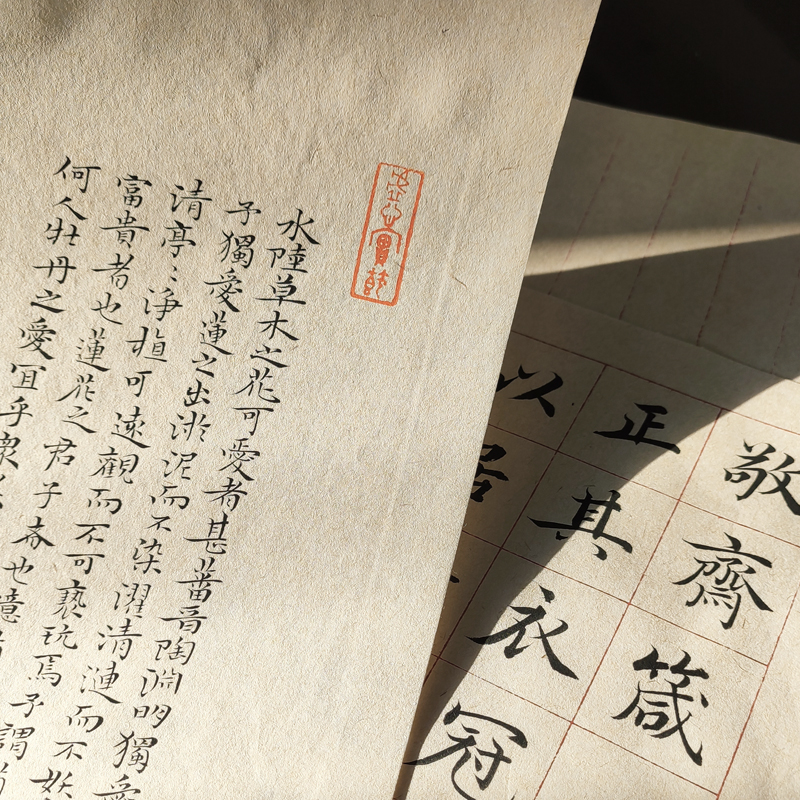 水陸草木之花可愛者甚蕃晉陶淵明獨愛
予獨愛蓮之出淤泥而不染濯清漣而不妖
清亭〻淨植可遠觀而不可褻玩焉予謂
富貴者也蓮花之君子者也噫
何人牡丹之愛宜乎衆矣
敬齋箴
正其衣冠
以居